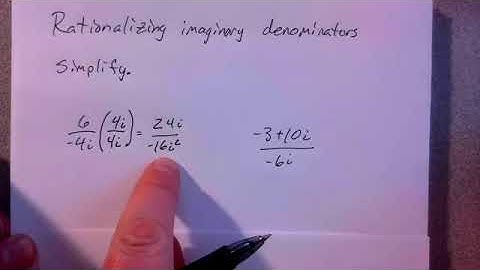 Rationalizing imaginary denominators
Simplify.
6/-4i (4i/4i) = 24i/-16i²
-3+10i/-6i